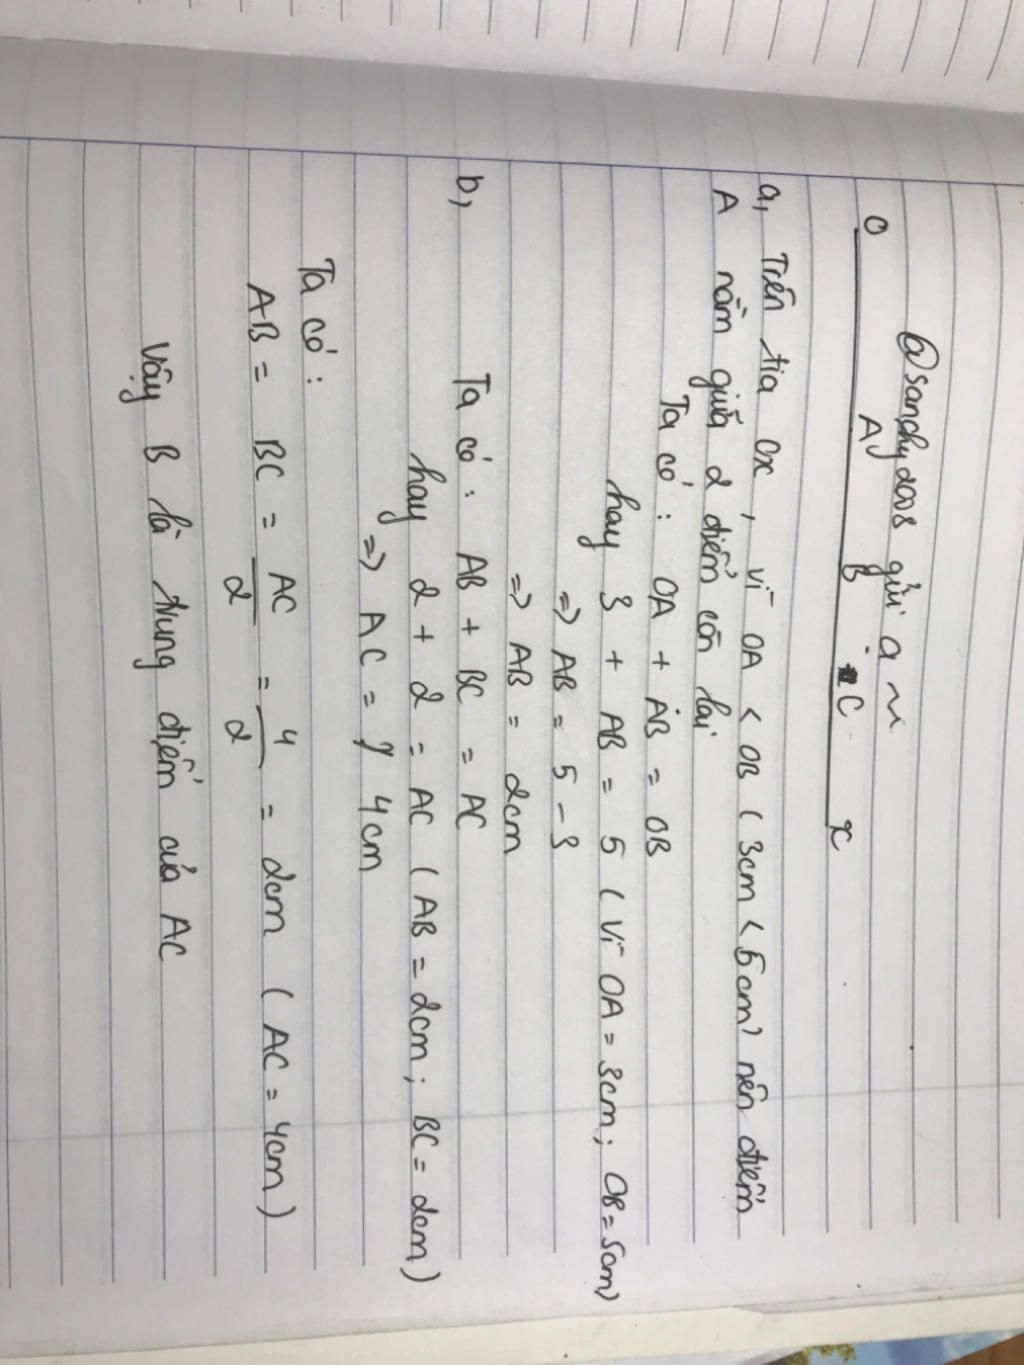 @sanchy2008 gửi ạ ~
O A B C x
a, Trên tia Ox, vì OA < OB (3cm < 5cm) nên điểm
A nằm giữa 2 điểm còn lại
Ta có: OA + AB = OB
hay 3 + AB = 5 (vì OA = 3cm; OB = 5cm)
=> AB = 5 - 3
=> AB = 2cm
b, Ta có: AB + BC = AC
hay 2 + 2 = AC (AB = 2cm; BC = 2cm)
=> AC = 4cm
Ta có:
AB = BC = AC/2 = 4/2 = 2cm (AC = 4cm)
Vậy B là trung điểm của AC